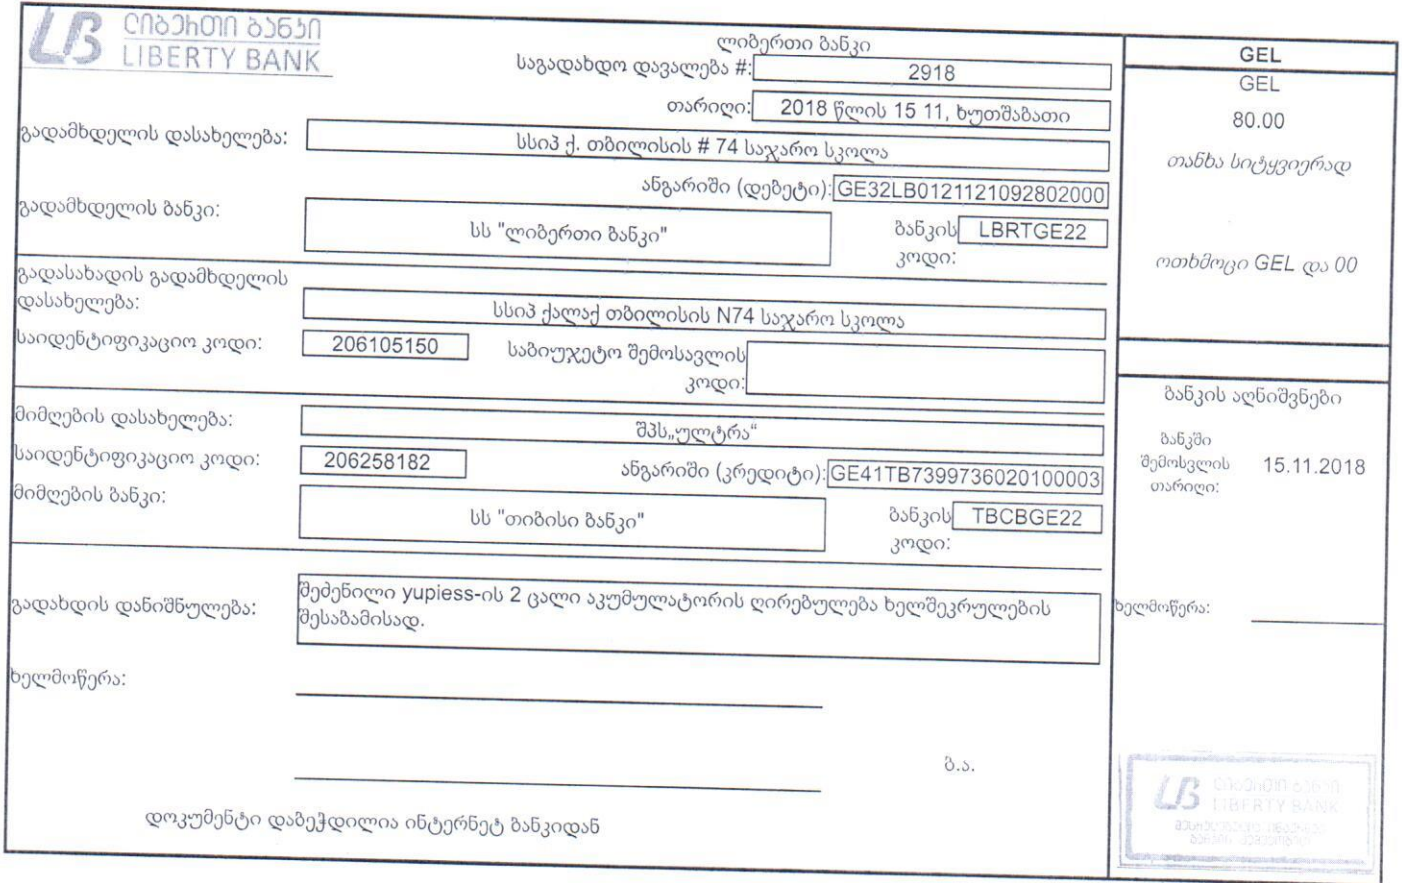 ᲚᲘᲑᲔᲠᲗᲘ ᲑᲐᲜᲙᲘ
LIBERTY BANK
ლიბერთი ბანკი
საგადახდო დავალება #: 2918
თარიღი: 2018 წლის 15 11, ხუთშაბათი
გადამხდელის დასახელება: სსიპ ქ. თბილისის # 74 საჯარო სკოლა
ანგარიში (დებეტი): GE32LB0121121092802000
გადამხდელის ბანკი: სს "ლიბერთი ბანკი" ბანკის კოდი: LBRTGE22
გადასახადის გადამხდელის
დასახელება: სსიპ ქალაქ თბილისის N74 საჯარო სკოლა
საიდენტიფიკაციო კოდი: 206105150 საბიუჯეტო შემოსავლის
კოდი:
მიმღების დასახელება: შპს„ულტრა“
საიდენტიფიკაციო კოდი: 206258182 ანგარიში (კრედიტი): GE41TB7399736020100003
მიმღების ბანკი: სს "თიბისი ბანკი" ბანკის კოდი: TBCBGE22
გადახდის დანიშნულება: შეძენილი yupiess-ის 2 ცალი აკუმულატორის ღირებულება ხელშეკრულების
შესაბამისად.
ხელმოწერა:
ბ.ა.
დოკუმენტი დაბეჭდილია ინტერნეტ ბანკიდან
GEL
GEL
80.00
თანხა სიტყვიერად
ოთხმოცი GEL და 00
ბანკის აღნიშვნები
ბანკში
შემოსვლის 15.11.2018
თარიღი:
ხელმოწერა:
ᲚᲘᲑᲔᲠᲗᲘ ᲑᲐᲜᲙᲘ
LIBERTY BANK